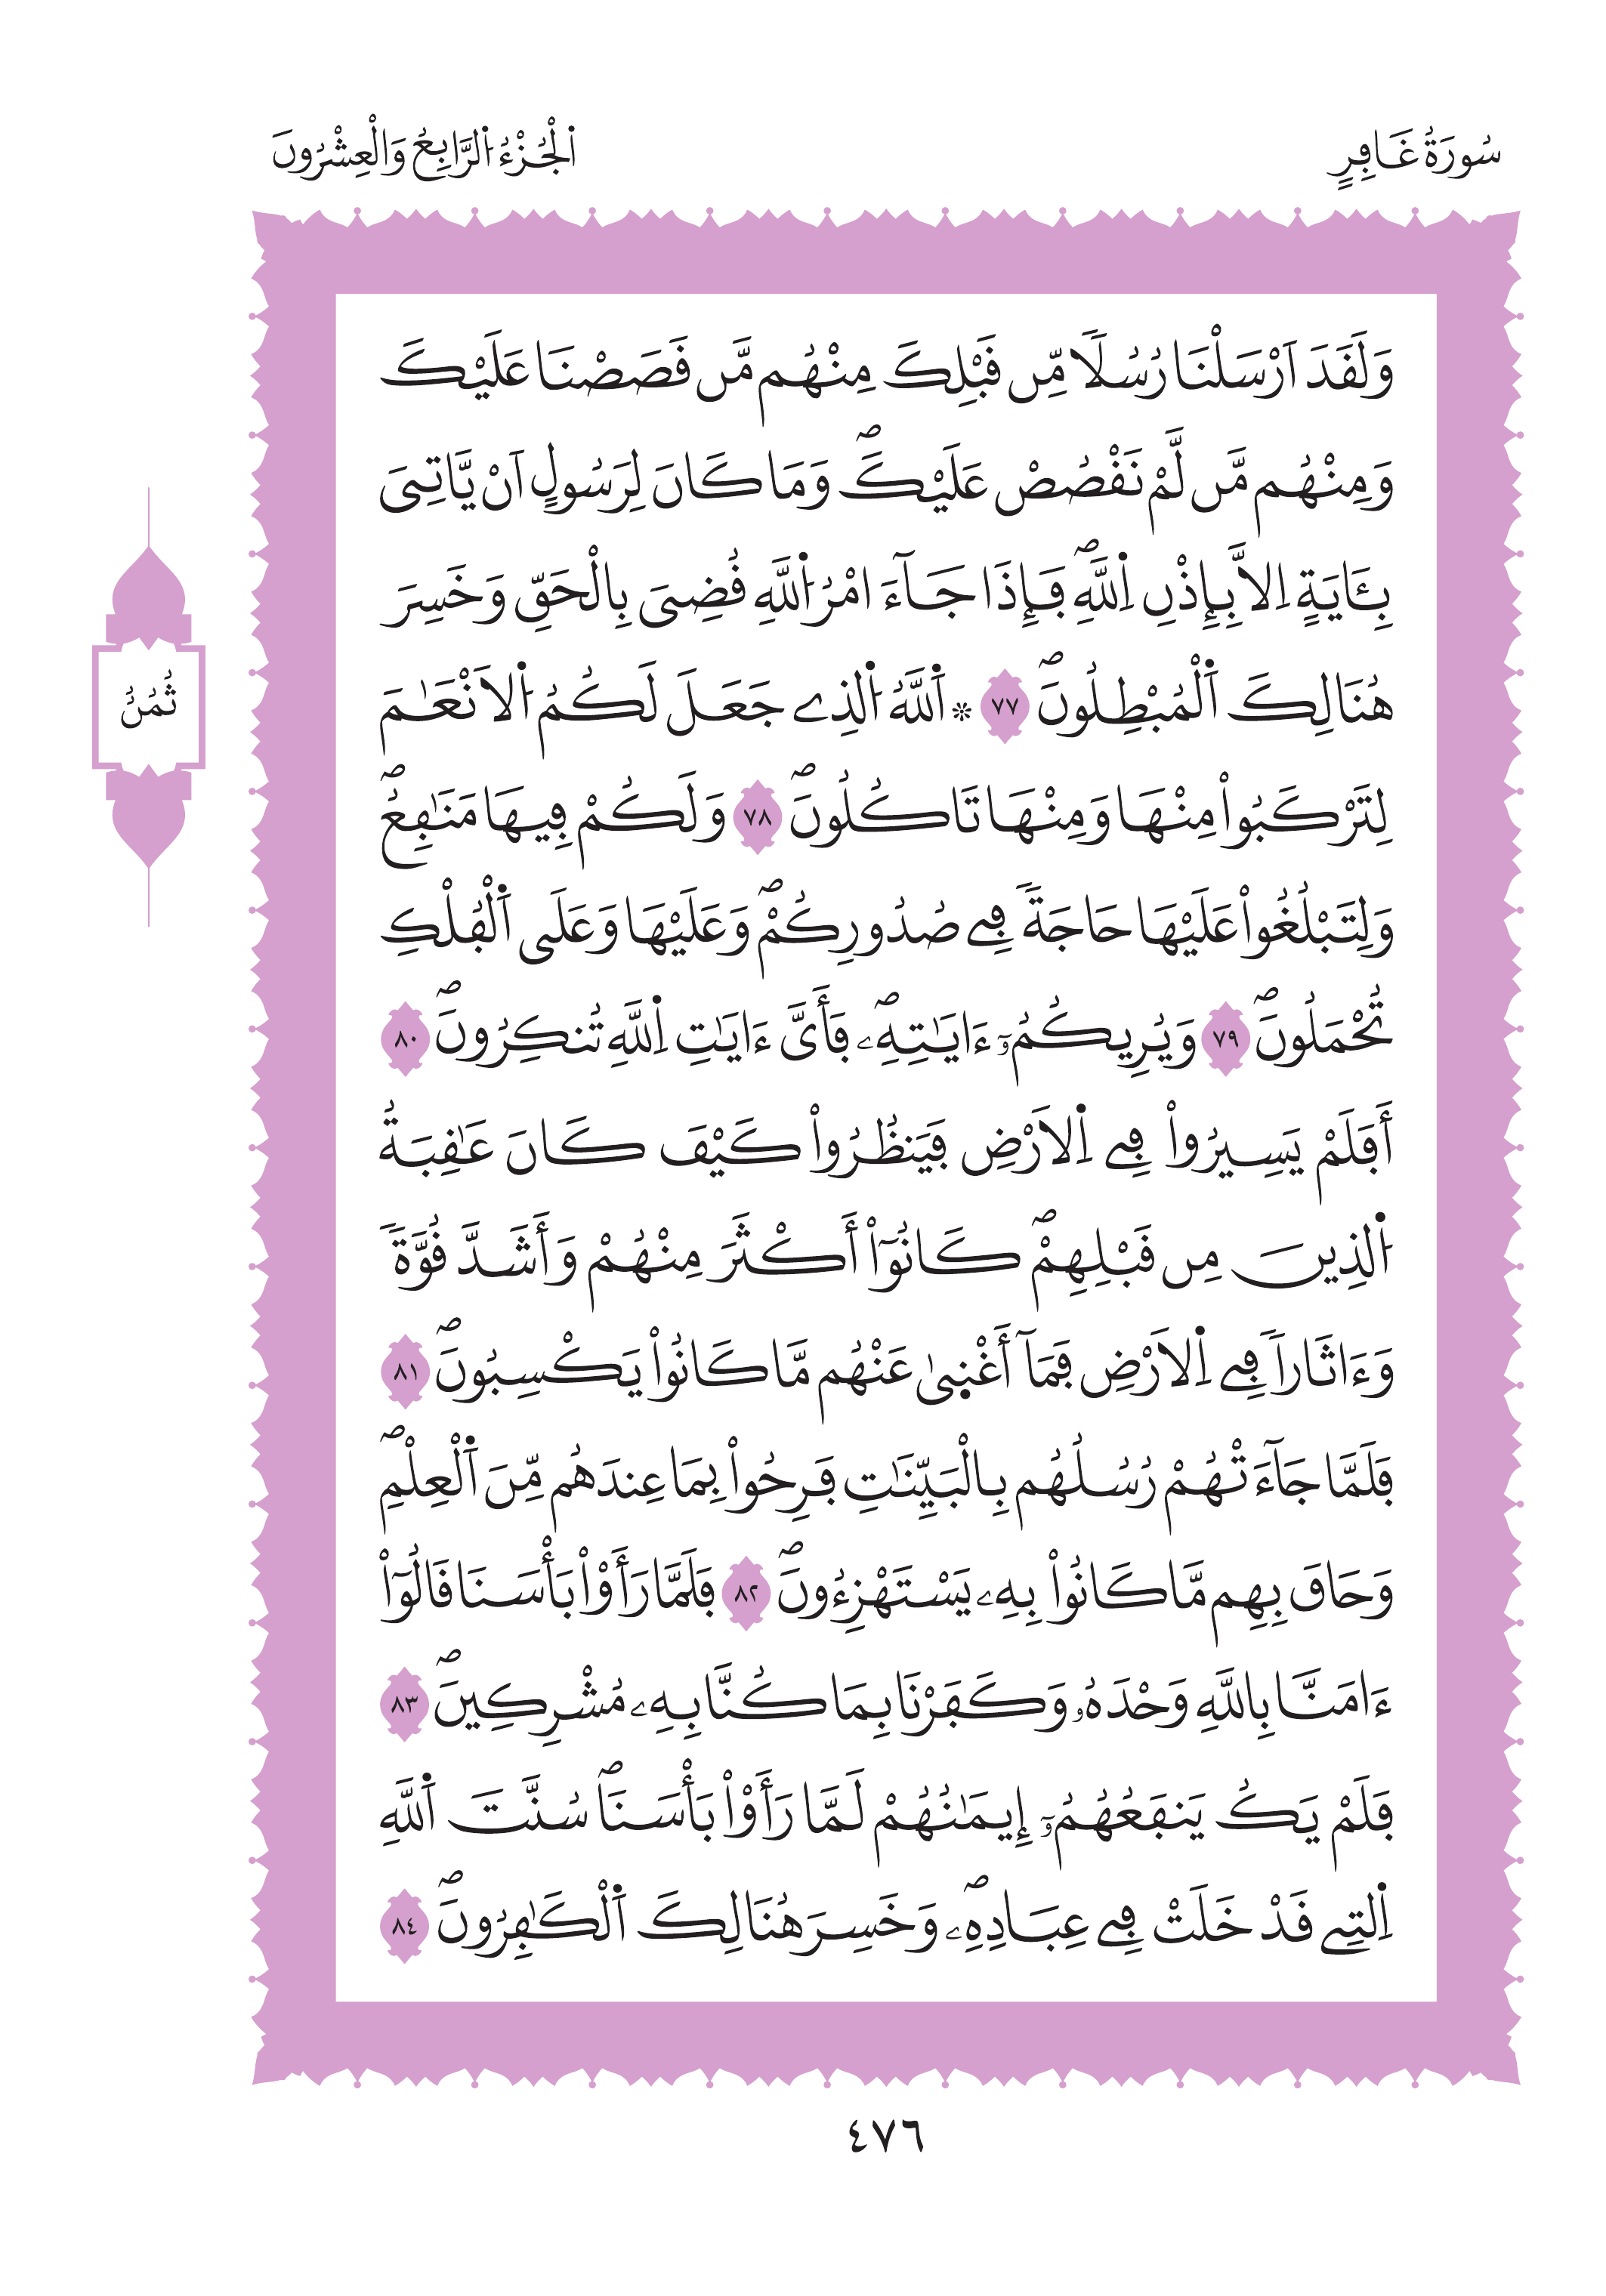 سُورَةُ غَافِرٍ
اُلْجُزْءُ اُلرَّابِعُ وَالْعِشْرُونَ
وَلَقَدَ اَرْسَلْنَا رُسُلٗا مِّن قَبْلِكَ مِنْهُم مَّن قَصَصْنَا عَلَيْكَ
وَمِنْهُم مَّن لَّمْ نَقْصُصْ عَلَيْكَۖ وَمَا كَانَ لِرَسُولٍ اَنْ يَّاتِيَ
بِـَٔايَةٍ اِلَّا بِإِذْنِ اِ۬للَّهِۖ فَإِذَا جَآءَ امْرُ اُ۬للَّهِ قُضِيَ بِالْحَقِّ وَخَسِرَ
هُنَالِكَ اَ۬لْمُبْطِلُونَۖ ٧٧ ۞ اَ۬للَّهُ اُ۬لذِے جَعَلَ لَكُمُ اُ۬لَانْعَٰمَ
لِتَرْكَبُواْ مِنْهَا وَمِنْهَا تَاكُلُونَۖ ٧٨ وَلَكُمْ فِيهَا مَنَٰفِعُۖ
وَلِتَبْلُغُواْ عَلَيْهَا حَاجَةٗ فِے صُدُورِكُمْۖ وَعَلَيْهَا وَعَلَي اَ۬لْفُلْكِ
تُحْمَلُونَۖ ٧٩ وَيُرِيكُمُۥٓ ءَايَٰتِهِۦۖ فَأَيَّ ءَايَٰتِ اِ۬للَّهِ تُنكِرُونَۖ ٨٠
أَفَلَمْ يَسِيرُواْ فِے اِ۬لَارْضِ فَيَنظُرُواْ كَيْفَ كَانَ عَٰقِبَةُ
اُ۬لذِينَ مِن قَبْلِهِمْۖ كَانُوٓاْ أَكْثَرَ مِنْهُمْ وَأَشَدَّ قُوَّةٗ
وَءَاثَاراٗ فِے اِ۬لَارْضِ فَمَآ أَغْن۪يٰ عَنْهُم مَّا كَانُواْ يَكْسِبُونَۖ ٨١
فَلَمَّا جَآءَتْهُمْ رُسُلُهُم بِالْبَيِّنَٰتِ فَرِحُواْ بِمَا عِندَهُم مِّنَ اَ۬لْعِلْمِۖ
وَحَاقَ بِهِم مَّا كَانُواْ بِهِۦ يَسْتَهْزِءُونَۖ ٨٢ فَلَمَّا رَأَوْاْ بَأْسَنَا قَالُوٓاْ
ءَامَنَّا بِاللَّهِ وَحْدَهُۥ وَكَفَرْنَا بِمَا كُنَّا بِهِۦ مُشْرِكِينَۖ ٨٣
فَلَمْ يَكُ يَنفَعُهُمُۥٓ إِيمَٰنُهُمْ لَمَّا رَأَوْاْ بَأْسَنَاۖ سُنَّتَ اَ۬للَّهِ
اِ۬لتِے قَدْ خَلَتْ فِے عِبَادِهِۦۖ وَخَسِرَ هُنَالِكَ اَ۬لْكَٰفِرُونَۖ ٨٤
ثُمُنُ
٤٧٦